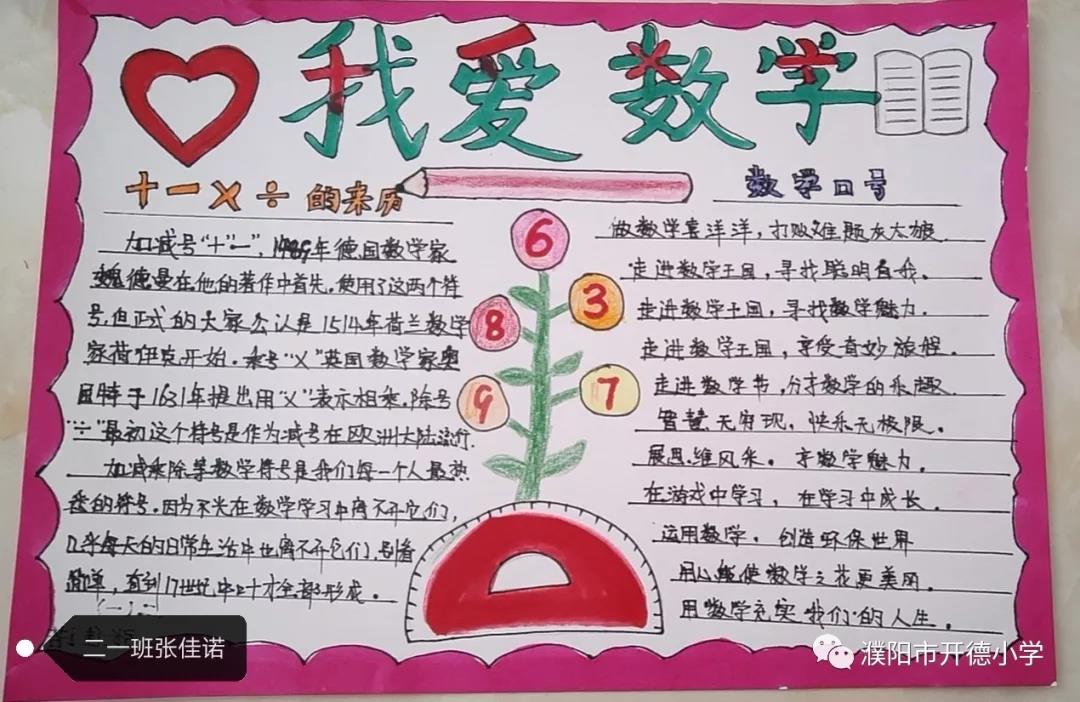 我爱数学
十一X÷的来历
加减号“十”“一”,1489年德国数学家
魏德曼在他的著作中首先使用了这两个符
号,但正式的大家公认是1514年荷兰数学
家荷伊克开始。乘号“X”英国数学家奥
屈特于1631年提出用“X”表示相乘。除号
“÷”最初这个符号是作为减号在欧洲大陆流行.
加减乘除等数学符号是我们每一个人最熟
悉的符号。因为不光在数学学习中离不开它们,
几乎每天的日常生活中也离不开它们,别看
简单,直到17世纪中叶才全部形成。
数学口号
做数学喜洋洋,打败难题灰太狼.
走进数学王国,寻找聪明自我。
走进数学王国,寻找数学魅力.
走进数学王国,享受奇妙旅程.
走进数学节,分才数学的乐趣
智慧无穷现,快乐无极限。
展思维风采。才数学魅力.
在游戏中学习,在学习中成长.
运用数学。创造环保世界
用心血使数学之花更美网.
用数学充实我们的人生.
6
3
8
7
9
二一班张佳诺
濮阳市开德小学